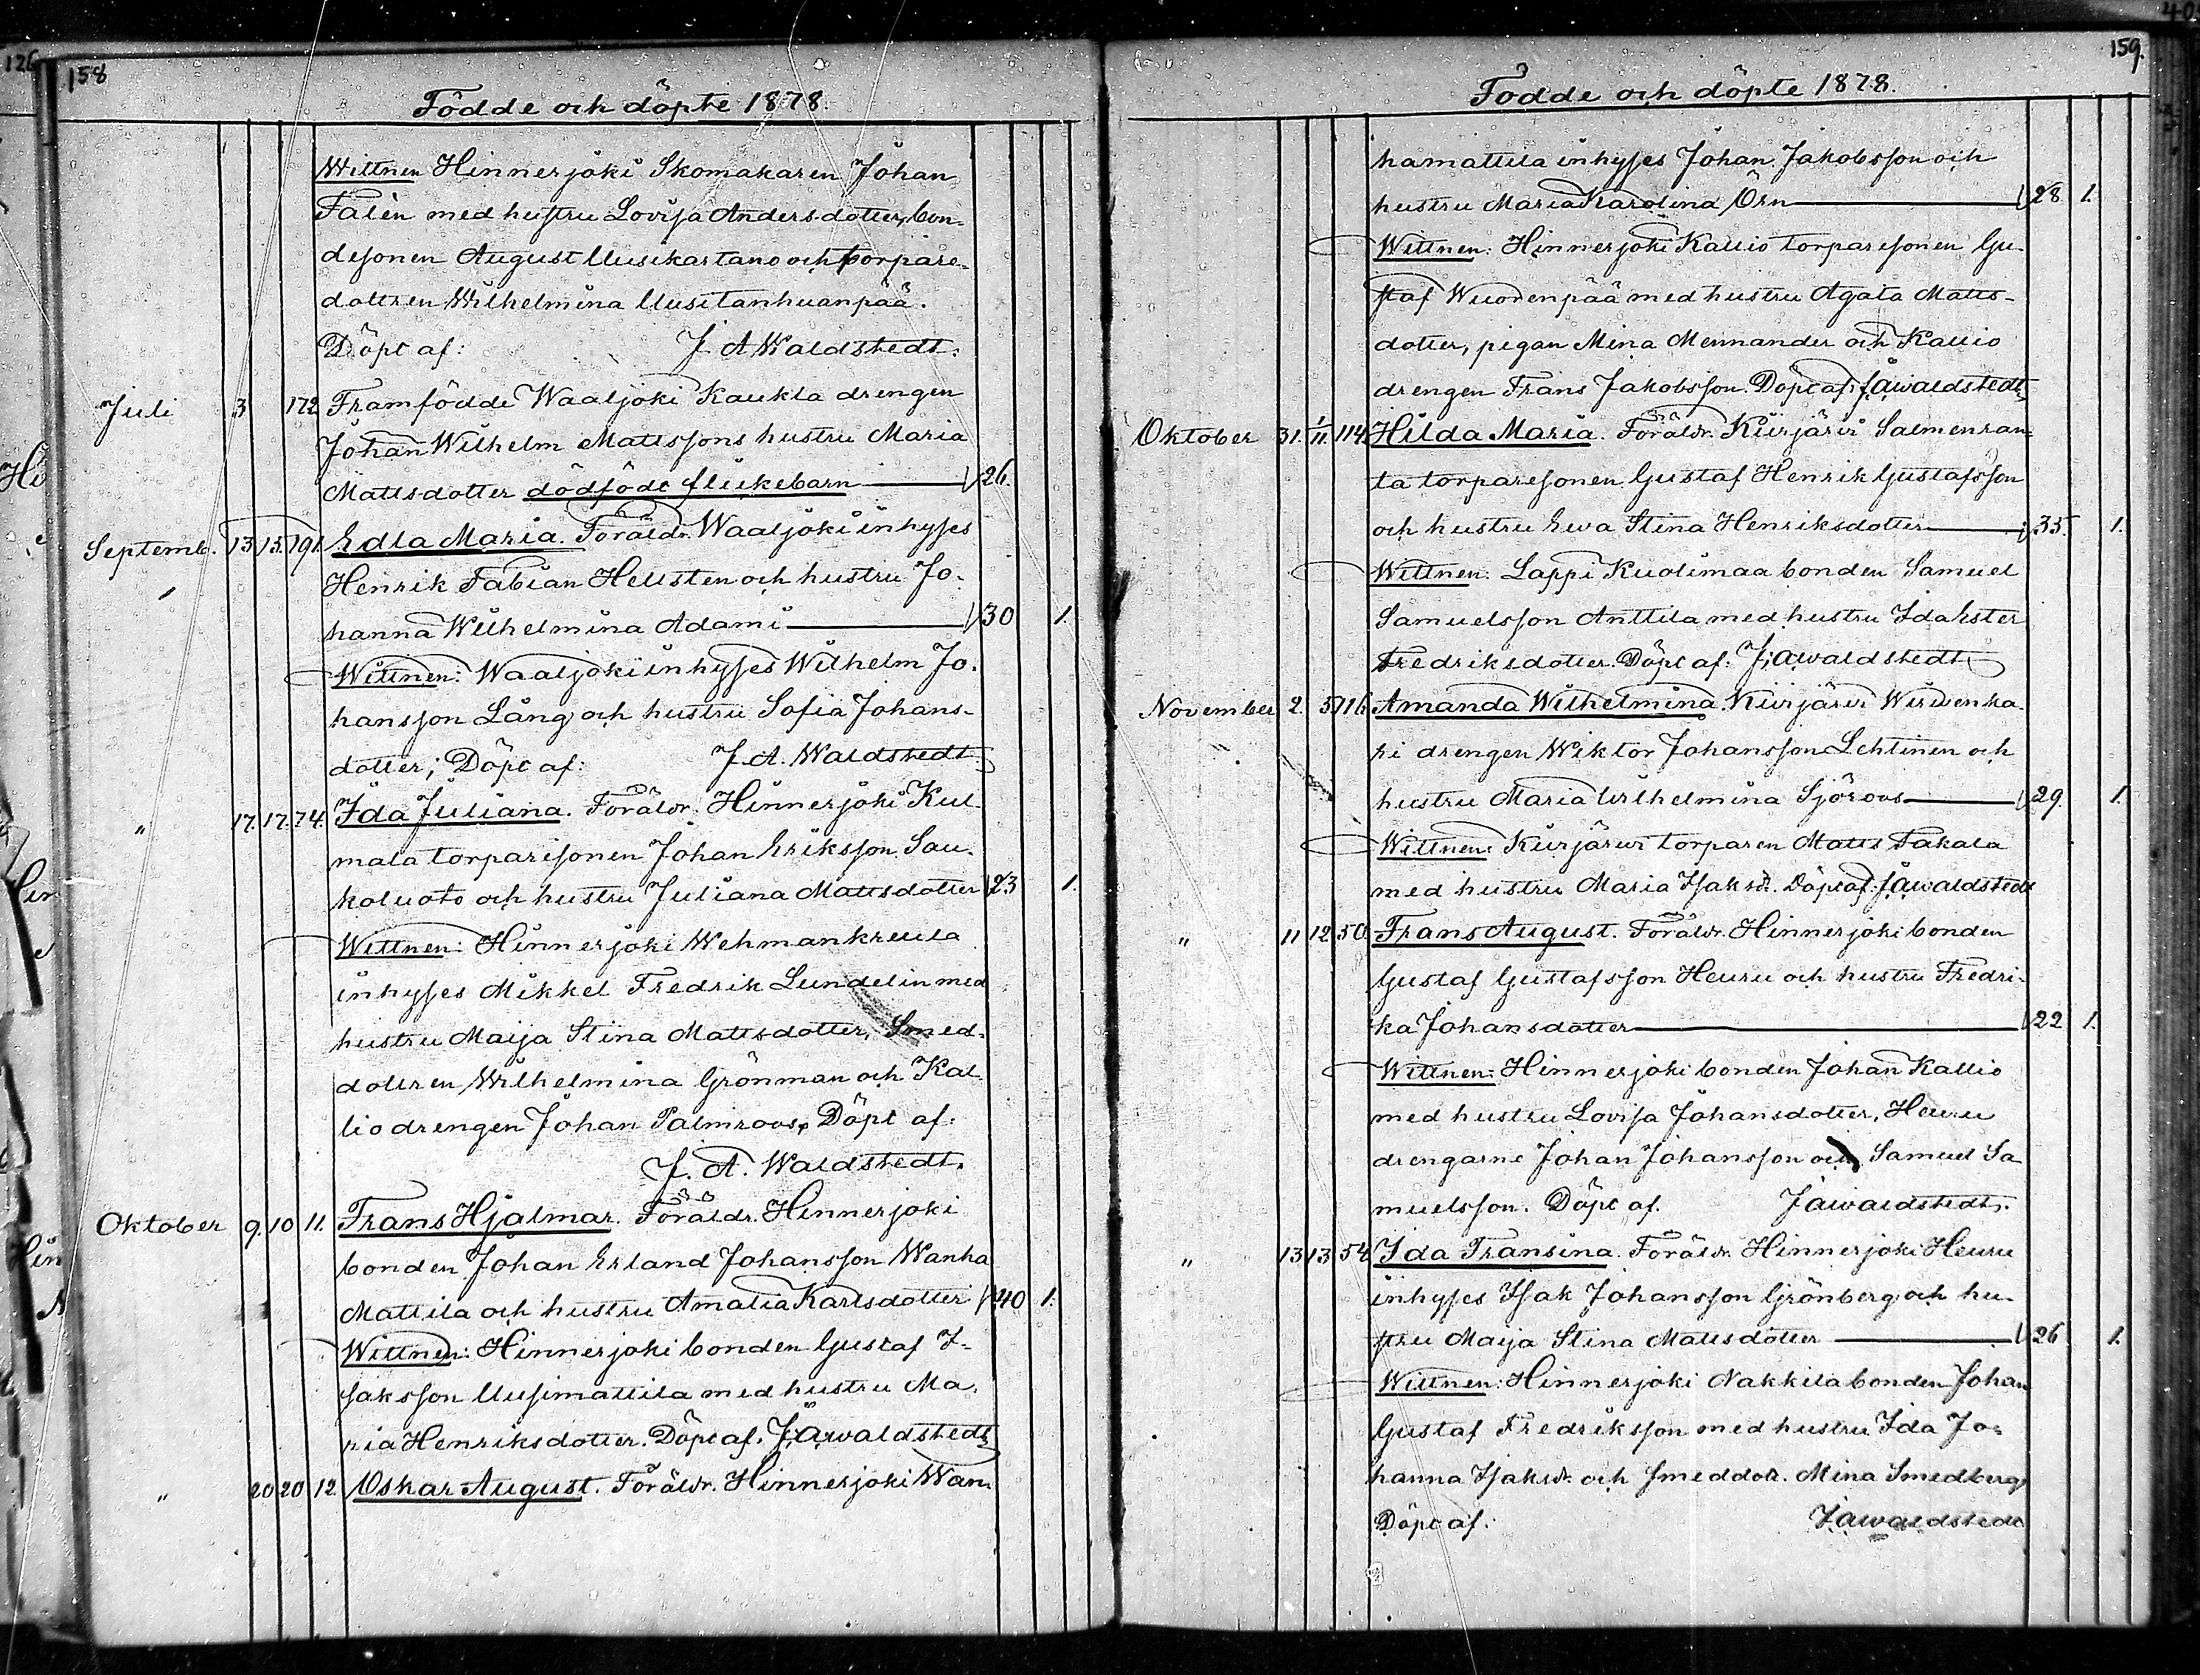 158
Födde och döpte 1878.
Wittnen Hinnerjoki Skomakaren Johan
Falén med hustru Lovisa Andersdotter, bon-
desonen August Uusikartano och torpare-
dottren Wilhelmina Uusitanhuanpää.
Döpt af: J. A. Waldstedt.
Juli 3 172 Framfödde Waaljoki Kaukla drengen
Johan Wilhelm Mattssons hustru Maria
Mattsdotter dödfödt flickebarn 26.
Septemb. 13 15. 191. Edla Maria. Föräldr. Waaljoki inhyses
Henrik Fabian Hellsten och hustru Jo-
hanna Wilhelmina Adami 30 1.
Wittnen: Waaljoki inhyses Wilhelm Jo-
hansson Lång och hustru Sofia Johans-
dotter; Döpt af: J. A. Waldstedt.
" 17. 17. 74. Ida Juliana. Föräldr. Hinnerjoki Kul-
mala torparesonen Johan Eriksson Sau-
koluoto och hustru Juliana Mattsdotter 23 1.
Wittnen: Hinnerjoki Wehmankreula
inhyses Mikkel Fredrik Lundelin med
hustru Maija Stina Mattsdotter, Smed-
dottren Wilhelmina Grönman och Kal-
lio drengen Johan Palmroos, Döpt af:
J. A. Waldstedt.
Oktober 9. 10 11. Frans Hjalmar. Föräldr. Hinnerjoki
bonden Johan Erland Johansson Wanha
Mattila och hustru Amalia Karlsdotter 40 1.
Wittnen: Hinnerjoki bonden Gustaf I-
saksson Uusimattila med hustru Ma-
ria Henriksdotter. Döpt af. J. A. Waldstedt
" 20 20 12. Oskar August. Föräldr. Hinnerjoki Wan-
159.
Födde och döpte 1878.
hamattila inhyses Johan Jakobsson och
hustru Maria Karolina Örn 28 1.
Wittnen: Hinnerjoki Kallio torparesonen Gu-
staf Wuorenpää med hustru Agata Matts-
dotter, pigan Mina Mennander och Kallio
drengen Frans Jakobsson. Döpt af: J. A. Waldstedt
Oktober 31. 1/11. 114. Hilda Maria. Föräldr. Kiirjärvi Salmenran-
ta torparesonen Gustaf Henrik Gustafsson
och hustru Ewa Stina Henriksdotter 35. 1.
Wittnen: Lappi Kuolimaa bonden Samuel
Samuelsson Anttila med hustru Ida Ester
Fredriksdotter. Döpt af: J. A. Waldstedt.
November 2. 3 116. Amanda Wilhelmina. Kiirjärvi Wirwenka-
ri drengen Wiktor Johansson Lehtinen och
hustru Maria Wilhelmina Sjöroos 29. 1.
Wittnen: Kiirjärvi torparen Matts Takala
med hustru Maria Isaksdr. Döpt af: J. A. Waldstedt
" 11 12 50. Frans August. Föräldr. Hinnerjoki bonden
Gustaf Gustafsson Heuru och hustru Fredri-
ka Johansdotter 22 1.
Wittnen: Hinnerjoki bonden Johan Kallio
med hustru Lovisa Johansdotter, Heuru
drengarne Johan Johansson och Samuel Sa
muelsson. Döpt af. J. A. Waldstedt.
" 13 13 54 Ida Fransina. Föräldr. Hinnerjoki Heuru
inhyses Isak Johansson Grönberg och hu-
stru Maija Stina Mattsdotter 26 1.
Wittnen: Hinnerjoki Nakkila bonden Johan
Gustaf Fredriksson med hustru Ida Jo-
hanna Isaksdr. och Smeddott. Mina Smedberg
Döpt af: J. A. Waldstedt